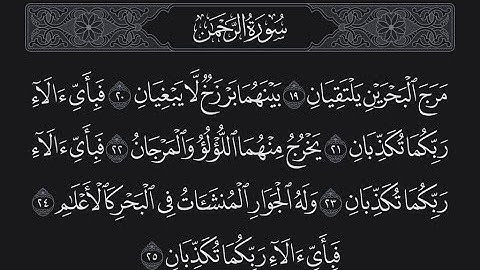 سُورَةُ الرَّحْمَٰن
مَرَجَ ٱلْبَحْرَيْنِ يَلْتَقِيَانِ ١٩ بَيْنَهُمَا بَرْزَخٌ لَّا يَبْغِيَانِ ٢٠ فَبِأَيِّ ءَالَآءِ
رَبِّكُمَا تُكَذِّبَانِ ٢١ يَخْرُجُ مِنْهُمَا ٱللُّؤْلُؤُ وَٱلْمَرْجَانُ ٢٢ فَبِأَيِّ ءَالَآءِ
رَبِّكُمَا تُكَذِّبَانِ ٢٣ وَلَهُ ٱلْجَوَارِ ٱلْمُنشَـَٔاتُ فِى ٱلْبَحْرِ كَٱلْأَعْلَٰمِ ٢٤
فَبِأَيِّ ءَالَآءِ رَبِّكُمَا تُكَذِّبَانِ ٢٥